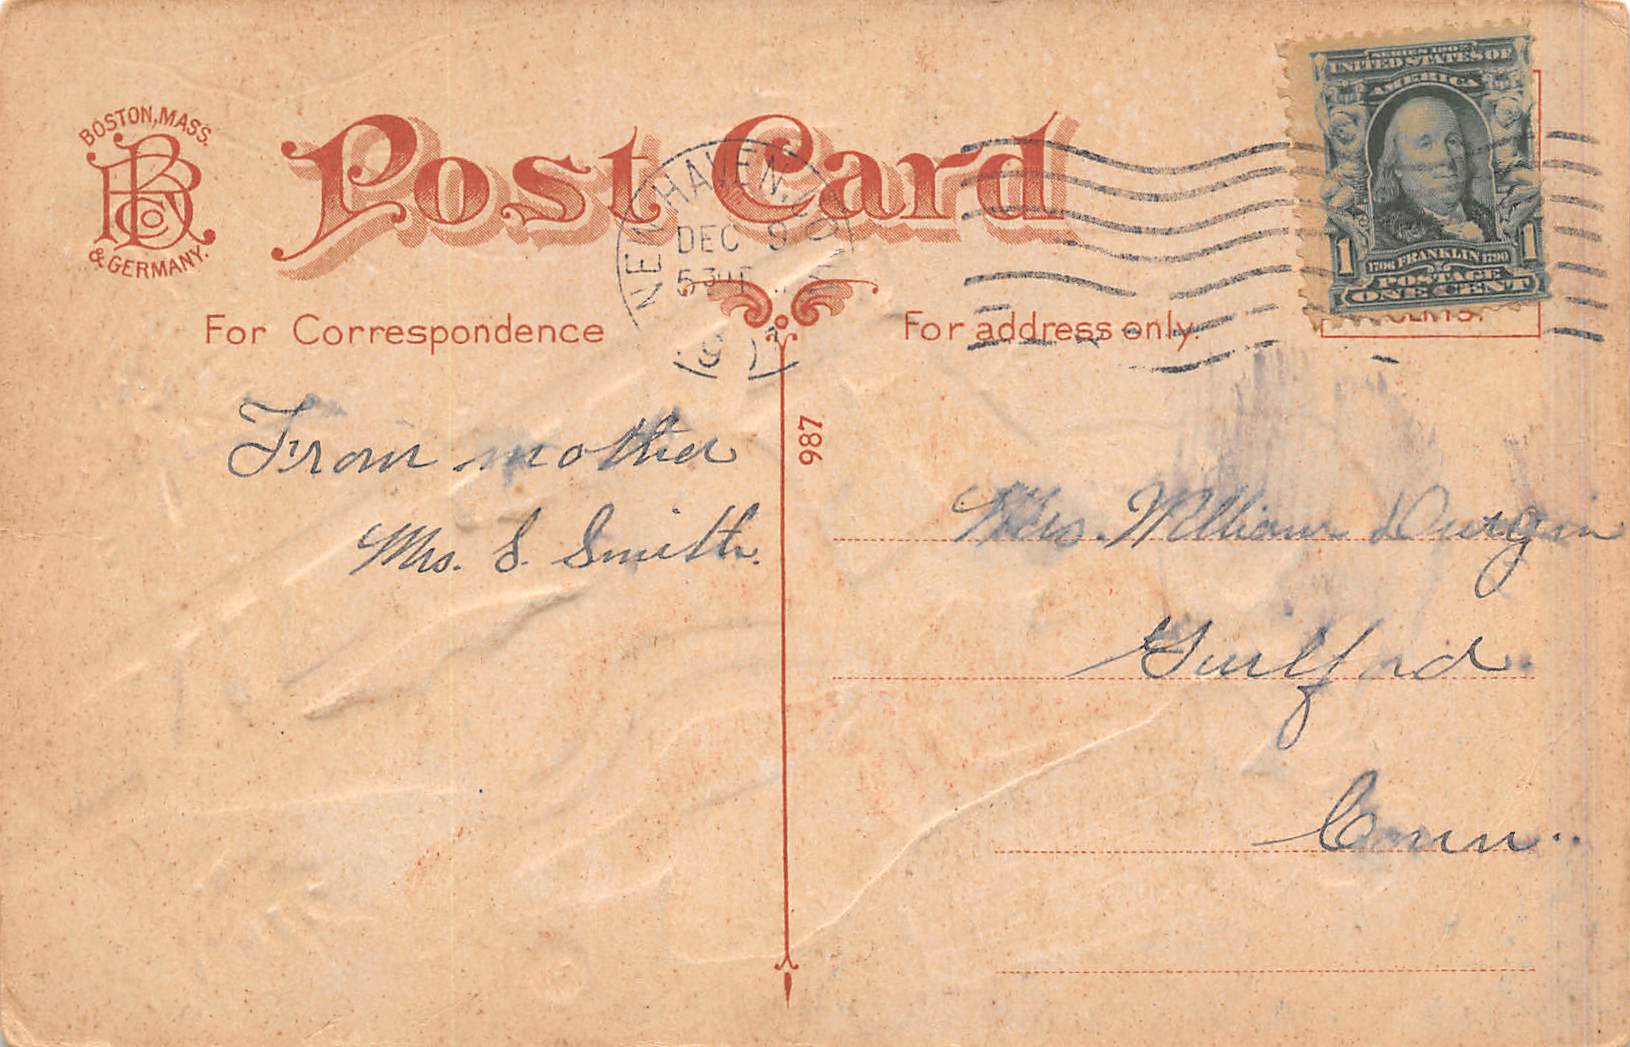 BOSTON, MASS.
& GERMANY.
Post Card
NEW HAVEN, CO
DEC 9
5
SERIES 1902
UNITED STATES OF
AMERICA
1 1
1706 FRANKLIN 1790
POSTAGE
ONE CENT
CENTS.
For Correspondence
For address only.
987
From mother
Mrs. S. Smith.
Mrs. William Durgin
Guilford.
Conn..